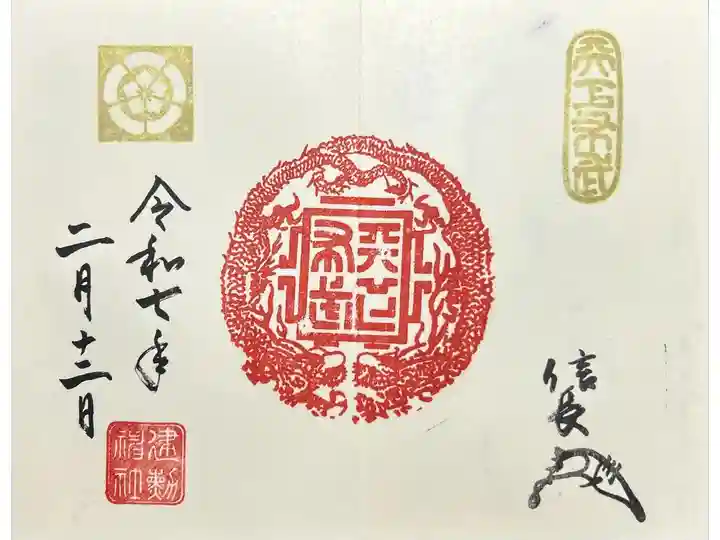 天下布武
天下布武
信長
令和七年
二月十二日
建勲神社